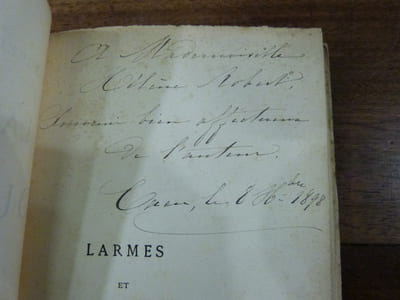 A Mademoiselle
Hélène Robert,
Souvenir bien affectueux
de l'auteur.
Caen, le 8 Xbre 1898
LARMES
ET